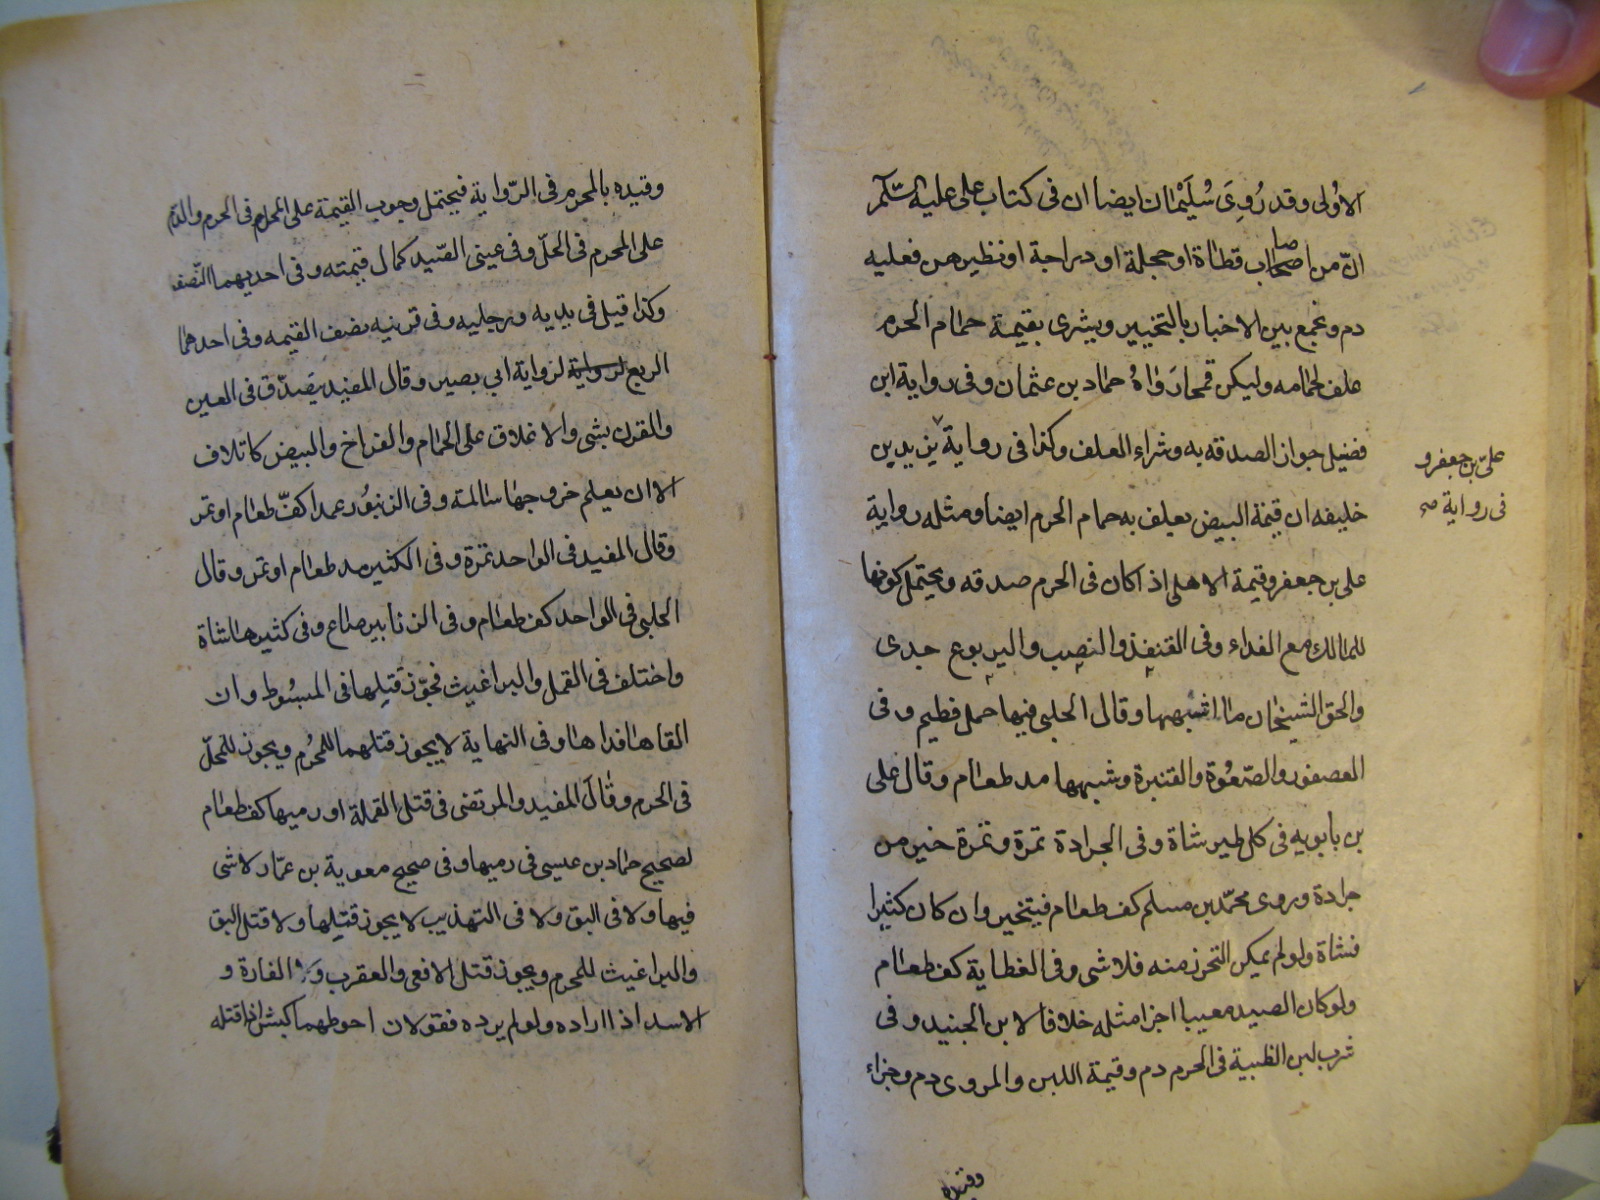 الاولى وقد رُوِىَ سُلَيْمان ايضا ان فى كتاب على عليه السّلم
انّ من اصاب قطاة او حجلة او دراجة او نظيرهن فعليه
دم ونجمع بين الاخبار بالتخيير ويشرى بقيمة حمام الحرم
علف لحمامه وليكن قمحا رَوٰاهُ حماد بن عثمان وفى رواية ابن
فضيل جواز الصدقه به وشراء العلف وكذا فى رواية يزيد بن
خليفه ان قيمة البيض يعلف به حمام الحرم ايضا ومثله رواية
على بن جعفر وقيمة الاهلى اذا كان فى الحرم صدقه ويحتمل كونها
للمالك مع الفداء وفى القنفذ والضب واليربوع جدى
والحق الشيخان ما اشبهها وقال الحلبى فيها حمل فطيم وفى
العصفور والصّعْوة والقنبرة وشبهها مد طعام وقال على
بن بابويه فى كل طير شاة وفى الجرادة تمرة وتمرة خير من
جرادة وروى محمّد بن مسلم كف طعام فيتخير وان كان كثيرا
فشاة ولو لم يمكن التحرز منه فلا شى وفى العظاية كف طعام
ولو كان الصيد معيبا اجزا مثله خلافا لابن الجنيد وفى
شرب لبن الظبية فى الحرم دم وقيمة اللبن والمروى دم وجزاء
وقيده
علىّ بن جعفر و
فى رواية
وقيده بالمحرم فى الرّواية فيحتمل وجوب القيمة على المحرم فى الحرم والدّم
على المحرم فى الحلّ وفى عينى الصّيد كمال قيمته وفى احديهما النّصف
وكذا قيل فى يديه ورجليه وفى قرنيه نصف القيمه وفى احدهما
الربع لرواية لرواية ابى بصير وقال المفيد يَصّدّق فى العين
والقرن بشى والاغلاق على الحمام والفراخ والبيض كاتلاف
الا ان يعلم خروجها سالمة وفى الزنبُور عمدا كفّ طعام او تمر
وقال المفيد فى الواحد تمرة وفى الكثير مد طعام او تمر وقال
الحلبى فى الواحد كف طعام وفى الزنابير صاع وفى كثيرها شاة
واختلف فى القمل والبراغيث فجوّز قتلها فى المبسُوط وان
القاها فداها وفى النهاية لا يجوز قتلهما للمحُرم ويجوز للمحلّ
فى الحرم وقالَ المفيد والمرتضى فى قتل القملة او رميها كف طعام
لصحيح حماد بن عيسى فى رميها وفى صحيح معوية بن عمّار لا شى
فيها ولا فى البق ولا فى التهذيب لا يجوز قتلها ولا قتل البق
والبراغيث للمحرم ويجوز قتل الافعى والعقرب و الفارة و
الاسد اذا اراده ولو لم يرده فقولان احوطهما كبش اذا قتله